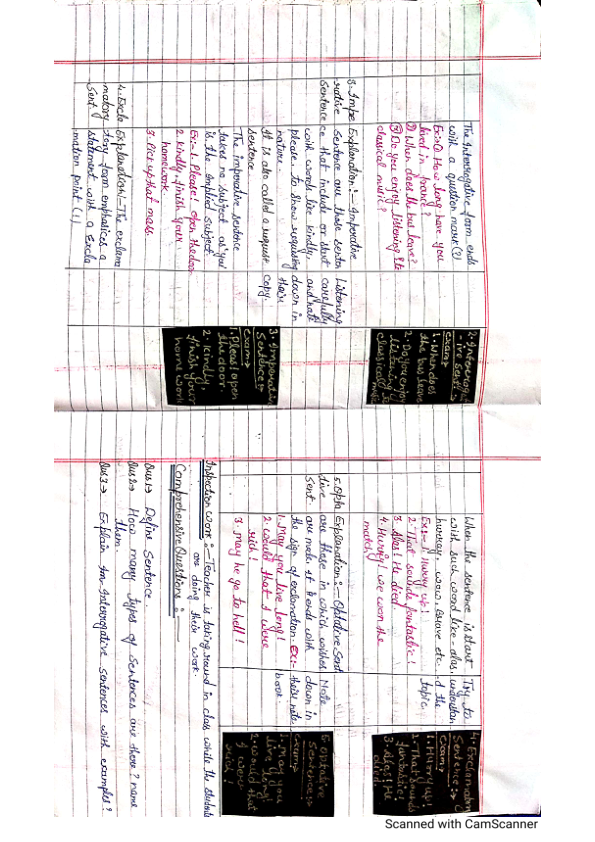 The Interrogative form ends
with a question mark (?)
Ex:- ① How long have you
lived in france?
② When does the bus leave?
③ Do you enjoy listening to
classical music?
2. Interrogat
-ive sent:-
exam→
1. When does
the bus leave
2. Do you enjoy
listening to
classical music
3. Impe
rative
sentence
Explanation:- Imperative
sentence are those sente
ce that include or start
with words like kindly,
please to show requesting
nature.
It is also called a request
sentence.
The imperative sentence
takes no subject as you
is the implied subject.
Ex:- 1. Please! open the door
2. Kindly, finish your
homework.
3. Pick up that mass.
Listening
carefully
and note
down in
their
copy.
3. Imperativ
Sentence:-
exam→
1. Pleas! open
the door.
2. Kindly,
finish your
home work
4. Excla
matory
Sent.
Explanation:- The exclama
tory form emphasizes a
statement with a Excla
mation point (!)
When the sentence is start
with such word like alas,
hurray, wow, Brave etc.
Ex:- 1. Hurry up!
2. That sounds fantastic!
3. Alas! He died.
4. Hurray! we won the
match!
Try to
understan
d the
topic.
4. Exclamation
sentence:-
Exam→
1. Hurry up!
2. That sounds
fantastic
3. Alas! He
died.
5. Opta
tive
sent.
Explanation:- Optative Sent
are these in which wishes
are made. It ends with
the sign of exclamation. Ex:-
1. May you live long!
2. Would that I were
rich!
3. May he go to hell!
Note
down in
their note
book.
5. Optative
Sentence:-
exam→
1. May you
live long
2. Would that
I were
rich!
Inspection work:- Teacher is taking round in class while the students
are doing their work.
Comprehensive Questions:-
Ques 1→ Define Sentence.
Ques 2→ How many types of sentences are there? name
them.
Ques 3→ Explain the Interrogative sentences with examples?
Scanned with CamScanner